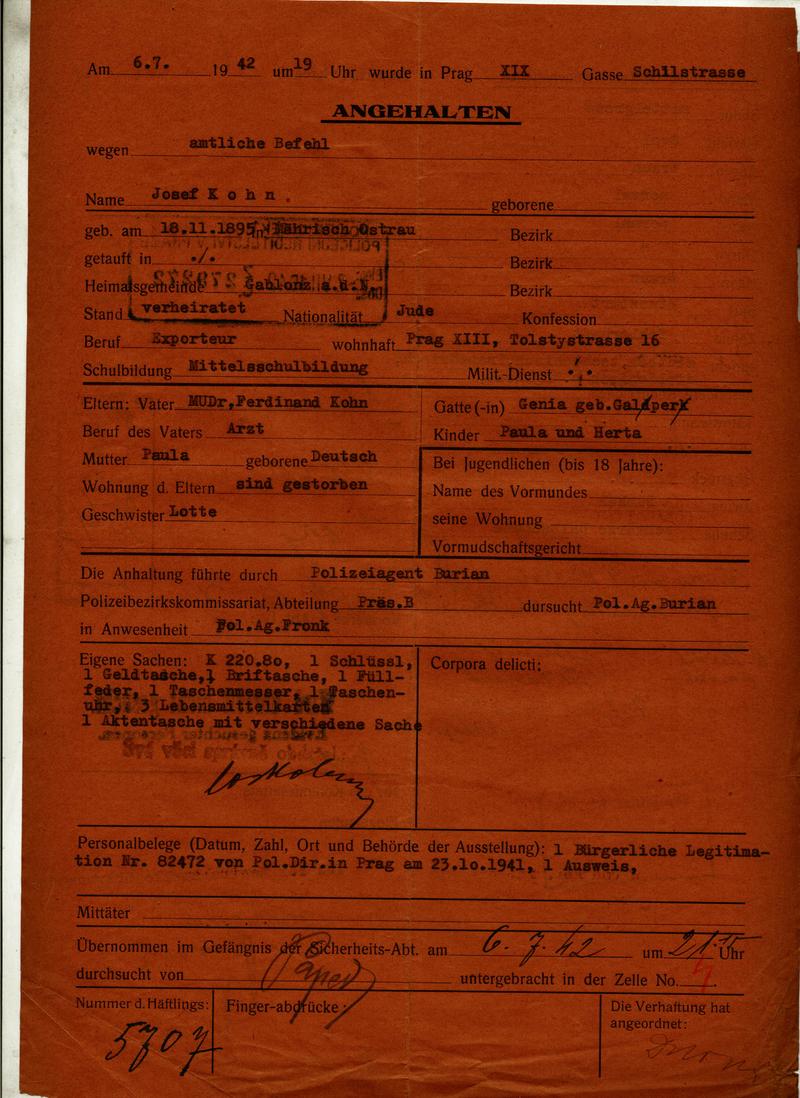 Am 6.7. 1942 um 19 Uhr wurde in Prag XIX Gasse Schilstrasse
ANGEHALTEN
wegen amtliche Befehl
Name Josef K o h n . geborene
geb. am 18.11.1895 in Mährisch Ostrau Bezirk
getauft in ./. Bezirk
Heimatsgemeinde Gablonz a.d.N. Bezirk
Stand verheiratet Nationalität Jude Konfession
Beruf Exporteur wohnhaft Prag XIII, Tolstystrasse 16
Schulbildung Mittelsschulbildung Milit.-Dienst ./.
Eltern: Vater MUDr,Ferdinand Kohn Gatte(-in) Genia geb.Galper
Beruf des Vaters Arzt Kinder Paula und Herta
Mutter Paula geborene Deutsch Bei Jugendlichen (bis 18 Jahre):
Wohnung d. Eltern sind gestorben Name des Vormundes
Geschwister Lotte seine Wohnung
Vormudschaftsgericht
Die Anhaltung führte durch Polizeiagent Burian
Polizeibezirkskommissariat, Abteilung Präs.B dursucht Pol.Ag.Burian
in Anwesenheit Pol.Ag.Fronk
Eigene Sachen: K 220.8o, 1 Schlüssl, Corpora delicti:
1 Geldtasche,1 Briftasche, 1 Füll-
feder, 1 Taschenmesser, 1 Taschen-
uhr, 3 Lebensmittelkarten
1 Aktentasche mit verschiedene Sache
Personalbelege (Datum, Zahl, Ort und Behörde der Ausstellung): 1 Bürgerliche Legitima-
tion Nr. 82472 von Pol.Dir.in Prag am 23.1o.1941, 1 Ausweis,
Mittäter
Übernommen im Gefängnis der Sicherheits-Abt. am 6. 7. 42 um 21.15 Uhr
durchsucht von untergebracht in der Zelle No.
Nummer d. Häftlings: Finger-abdrücke: Die Verhaftung hat
angeordnet:
5707